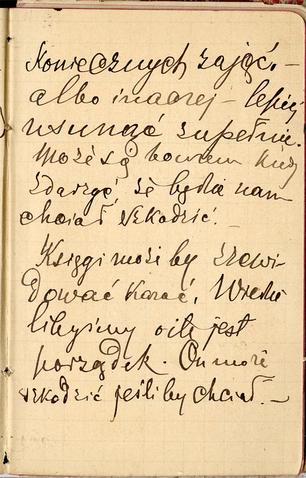 koniecznych zajęć. –
albo inaczej – lepiej
usunąć zupełnie.
Może się bowiem kiedyś
zdarzyć, że będzie nam
chciał szkodzić. –
Księgi może by zrewi-
dować kazać,
libyśmy o ile jest
porządek. On może
szkodzić jeśli by chciał. –